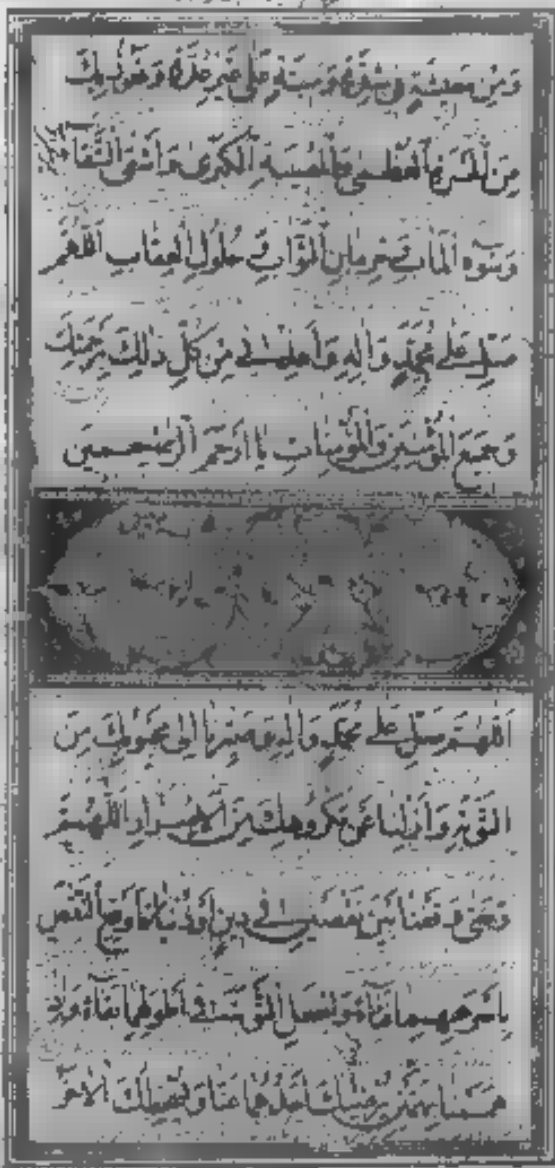 وَمِنْ مَعِيشَةٍ فِي شِدَّةٍ وَمِيتَةٍ عَلَى غَيْرِ عُدَّةٍ وَنَعُوذُ بِكَ
مِنَ الْحَسْرَةِ الْعُظْمَى وَالْمُصِيبَةِ الْكُبْرَى وَأَشْقَى الشَّقَاءِ
وَسُوءِ الْمَآبِ وَحِرْمَانِ الثَّوَابِ وَحُلُولِ الْعِقَابِ اَللّهُمَّ
صَلِّ عَلَى مُحَمَّدٍ وَآلِهِ وَأَعِذْنِي مِنْ كُلِّ ذَلِكَ بِرَحْمَتِكَ
وَجَمِيعَ الْمُؤْمِنِينَ وَالْمُؤْمِنَاتِ يَا أَرْحَمَ الرَّاحِمِينَ
اَللّهُمَّ صَلِّ عَلَى مُحَمَّدٍ وَآلِهِ وَصَيِّرْنَا إِلَى مَحْبُوبِكَ مِنَ
التَّوْبَةِ وَأَزِلْنَا عَنْ مَكْرُوهِكَ مِنَ الْإِصْرَارِ اَللّهُمَّ
وَمَتَى وَقَفْنَا بَيْنَ نَقْصَيْنِ فِي دِينٍ أَوْ دُنْيَا فَأَوْقِعِ النَّقْصَ
بِأَسْرَعِهِمَا فَنَاءً وَاجْعَلِ التَّوْبَةَ فِي أَطْوَلِهِمَا بَقَاءً وَإِذَا
هَمَمْنَا بِهَمَّيْنِ يُرْضِيكَ أَحَدُهُمَا عَنَّا وَيُسْخِطُكَ الْآخَرُ